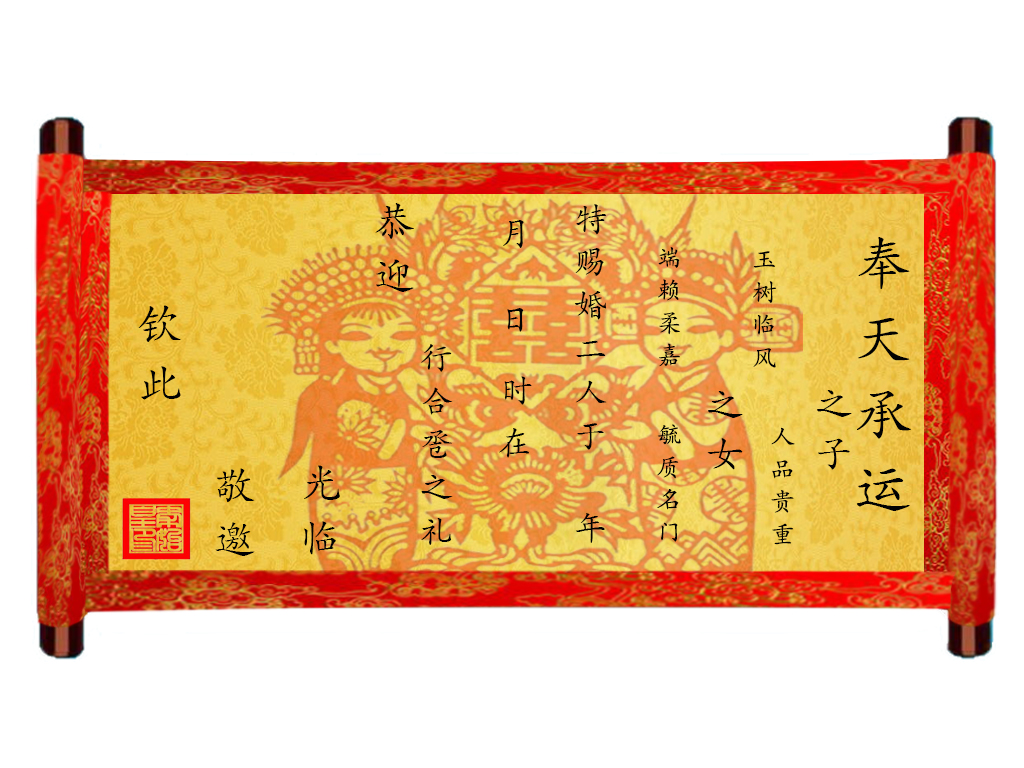 奉天承运
之子
玉树临风
人品贵重
之女
端赖柔嘉
毓质名门
特赐婚二人于 年
月 日 时 在
行合卺之礼
恭迎
光临
敬邀
钦此